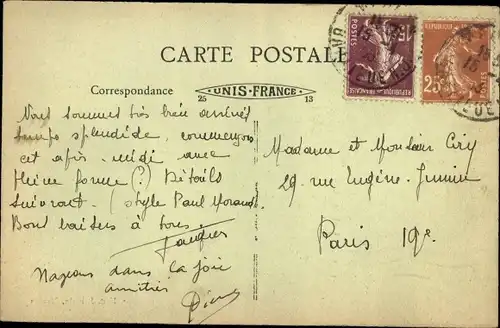 CARTE POSTALE
Correspondance
UNIS-FRANCE
25 13
Nous sommes très bien arrivés
temps splendide, commençons
cet après-midi avec
pleine forme (?) Détails
suivront. (style Paul Morand)
Bons baisers à tous.
Jacques
Nageons dans la joie
amitiés
Madame et Monsieur Ciry
29 rue Eugène-Jumin
Paris 19e
15c
POSTES
25c